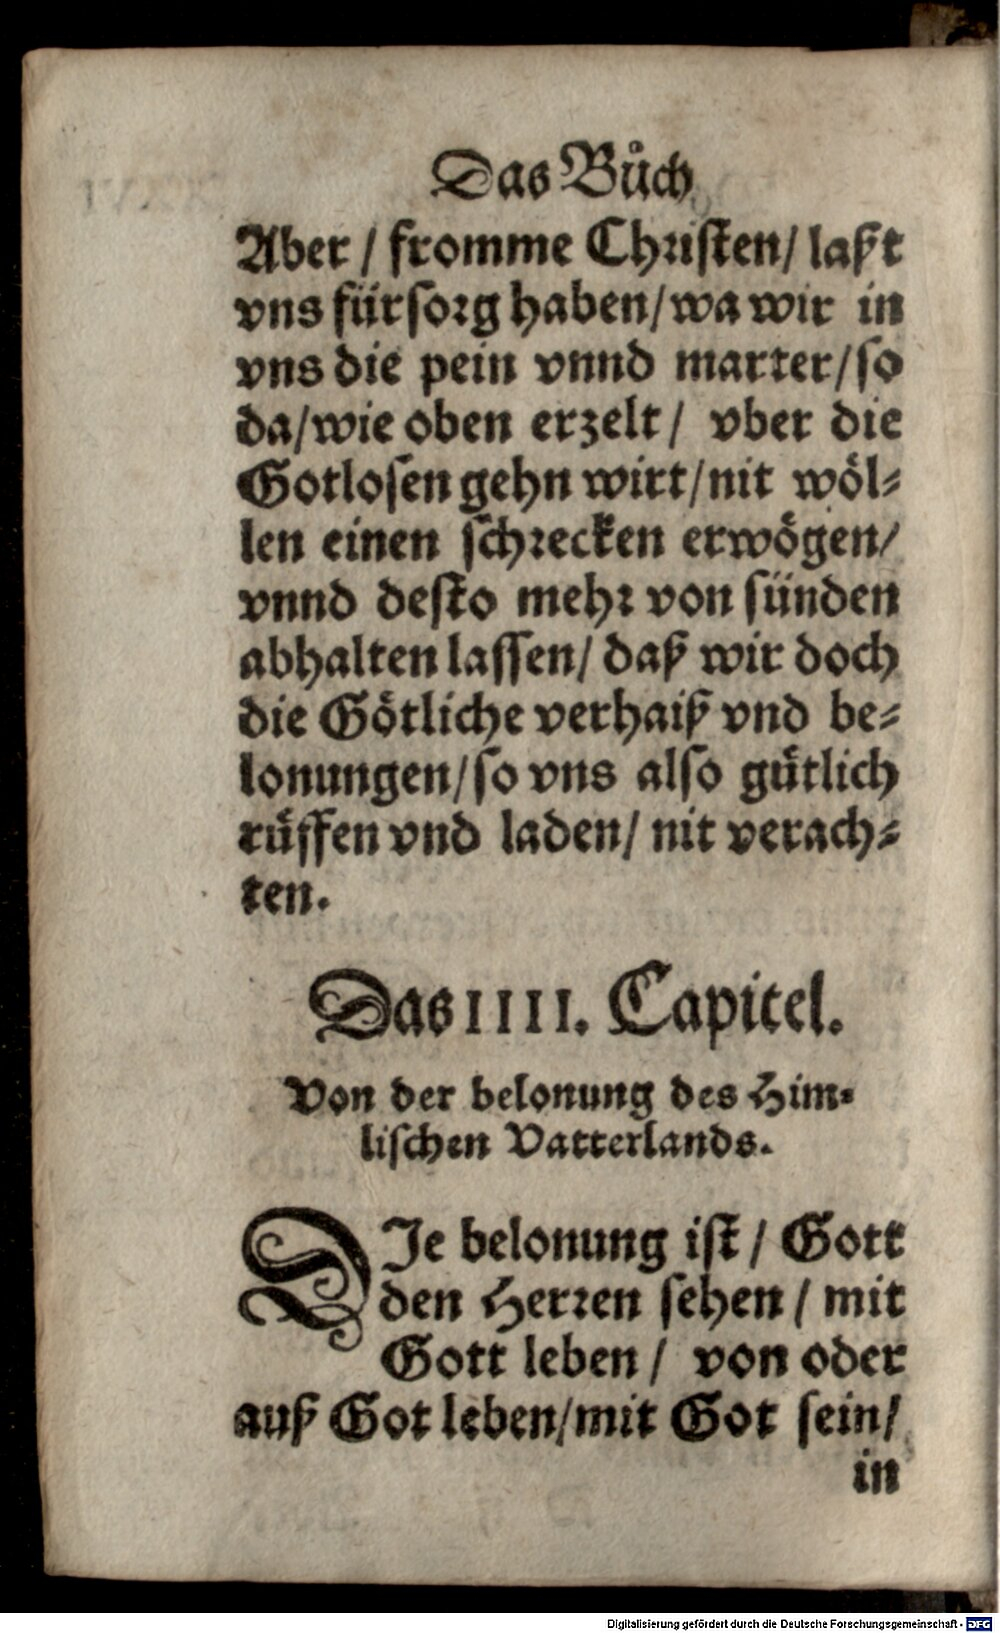 Das Bůch
Aber / fromme Christen / laßt
vns fürsorg haben / wa wir in
vns die pein vnnd marter / so
da / wie oben erzelt / vber die
Gotlosen gehn wirt / nit wöl⸗
len einen schrecken erwögen /
vnnd desto mehr von sünden
abhalten lassen / daß wir doch
die Götliche verhaiß vnd be⸗
lonungen / so vns also gütlich
rüffen vnd laden / nit verach⸗
ten.
Das IIII. Capitel.
Von der belonung des Him⸗
lischen Vatterlands.
DIe belonung ist / Gott
den Herren sehen / mit
Gott leben / von oder
auß Got leben / mit Got sein /
in
Digitalisierung gefördert durch die Deutsche Forschungsgemeinschaft - DFG